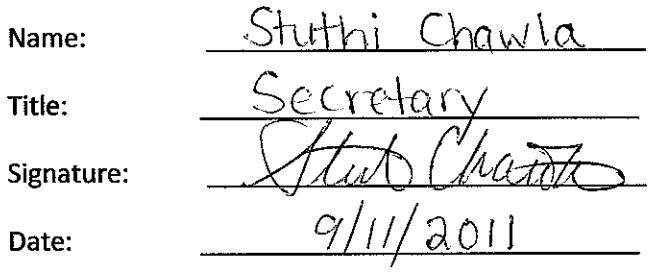 Name: Stuthi Chawla
Title: Secretary
Signature: Stuti Chawla
Date: 9/11/2011